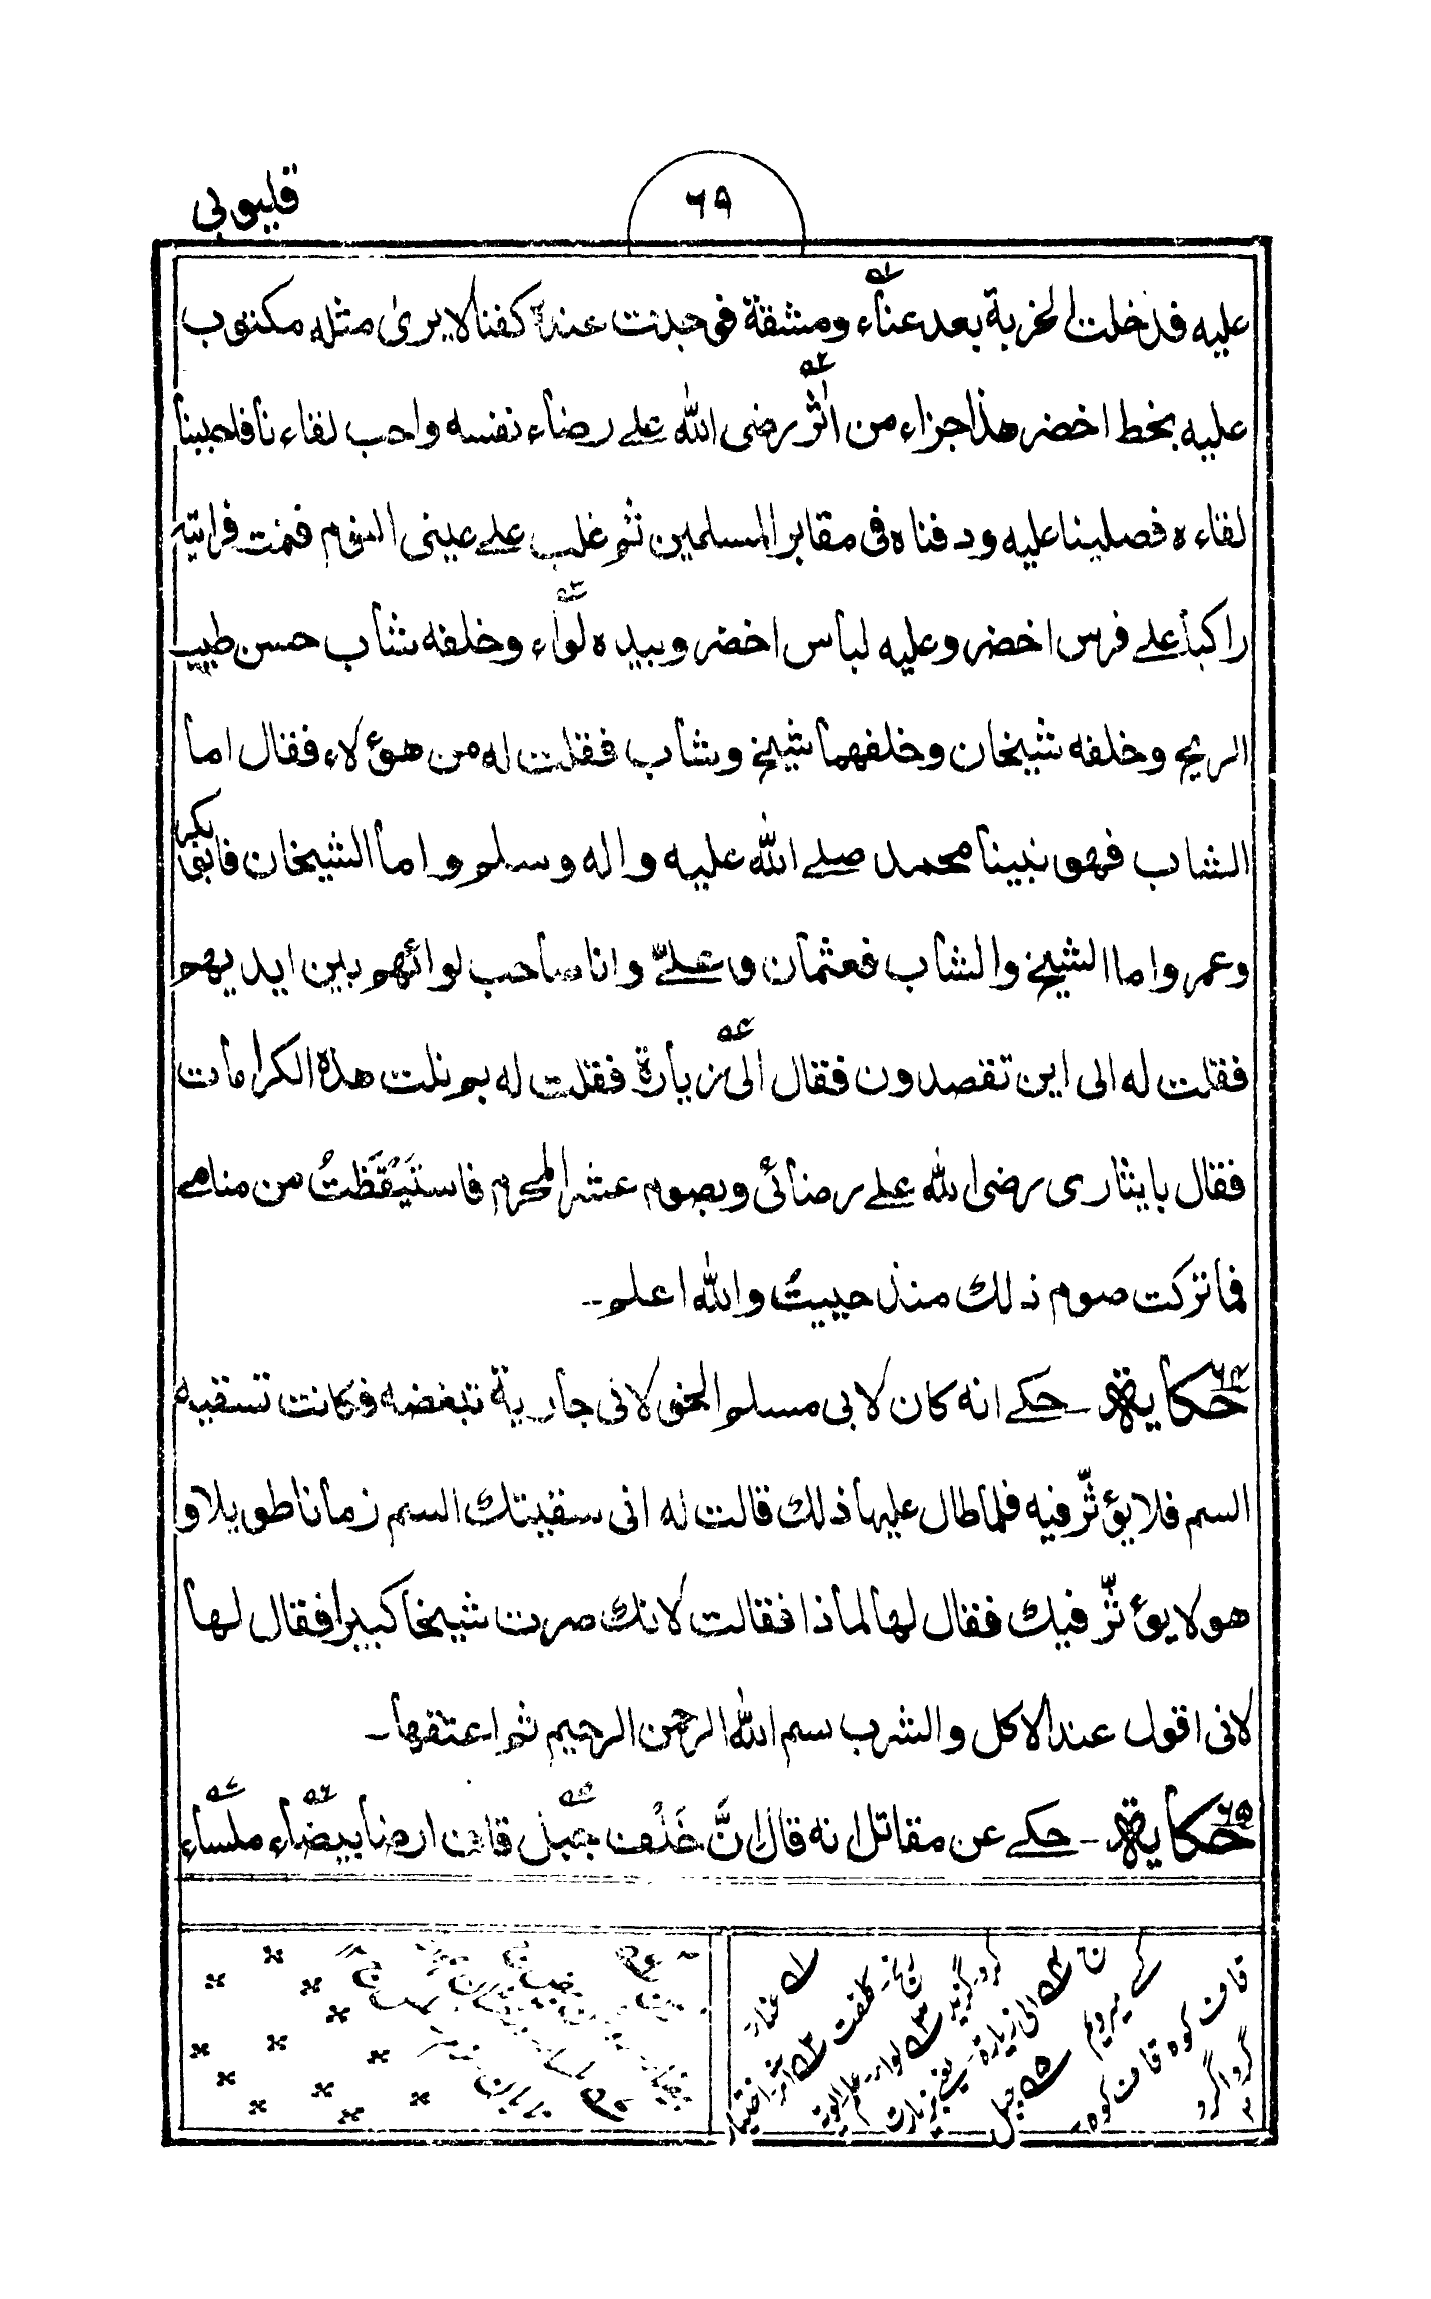 قليوبى
٦٩
عليه فدخلت الخربة بعد عناء ومشقة فوجدت عنده كفنا لا يرىٰ مثله مكتوب
عليه بخط اخضر هذا جزاء من اٰثر رضى الله على رضاء نفسه واحب لقاء نا فاحببنا
لقاءه فصلينا عليه ودفناه فى مقابر المسلمين ثم غلب على عينى النوم فنمت فرأيته
راكبا على فرس اخضر وعليه لباس اخضر وبيده لواء وخلفه شاب حسن طيب
الريح وخلفه شيخان وخلفهما شيخ وشاب فقلت له من هؤلاء فقال اما
الشاب فهو نبينا محمد صلى الله عليه واله وسلم واما الشيخان فابو بكر
وعمر واما الشيخ والشاب فعثمان وعلىّ وانا صاحب لوائهم بين ايديهم
فقلت له الى اين تقصدون فقال الى زيارة فقلت له بم نلت هذه الكرامات
فقال بايثارى رضى الله على رضائى وبصوم عشر المحرم فاستَيْقَظْتُ من منامى
فما تركت صوم ذلك منذ حييتُ والله اعلم۔۔
٦٤ حكاية ۔ حكى انه كان لابى مسلم الخولانى جارية تبغضه فكانت تسقيه
السم فلا يؤثّر فيه فلما طال عليها ذلك قالت له انى سقيتك السم زمانا طويلا و
هو لا يؤثّر فيك فقال لها لماذا فقالت لانك صرت شيخا كبيرا فقال لها
لانى اقول عند الاكل والشرب بسم الله الرحمن الرحيم ثم اعتقها۔
٦٥ حكاية ۔ حكى عن مقاتل انه قال اِنَّ خَلْف جبل قاف ارضا بيضاء ملساء